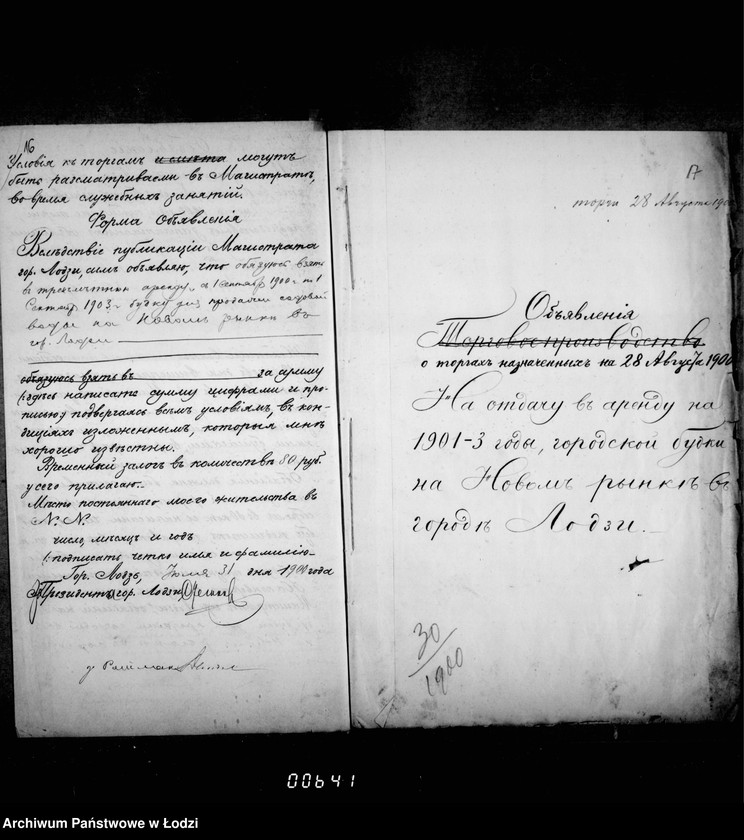 16
Условія къ торгамъ и смѣта могутъ
быть разсматриваемы въ Магистратѣ,
во время служебныхъ занятій.
Форма Объявленія
Вслѣдствіе публикаціи Магистрата
гор. Лодзи, симъ объявляю, что обязуюсь взять
въ трехлѣтнюю аренду съ 1 Сентября 1900 г. по 1
Сентября 1903 г. будку для продажи содовой
воды на Новомъ рынкѣ въ
гор. Лодзи
обязуюсь взять въ за сумму
(здѣсь написать сумму цифрами и про-
писью) подвергаясь всѣмъ условіямъ, въ кон-
диціяхъ изложеннымъ, которыя мнѣ
хорошо извѣстны.
Временный залогъ въ количествѣ 80 руб.
у сего прилагаю.
Мѣсто постояннаго моего жительства въ
N. N.
число, мѣсяцъ и годъ
(подписать четко имя и фамилію
Гор. Лодзь, Іюля 31 дня 1900 года
Президентъ гор. Лодзи
17
торги 28 Августа 190
Объявленія
Торговое производство
о торгахъ назначенныхъ на 28 Августа 1900
На отдачу въ аренду на
1901-3 годы, городской будки
на Новомъ рынкѣ въ
городѣ Лодзи.
30
1900
00641
Archiwum Państwowe w Łodzi